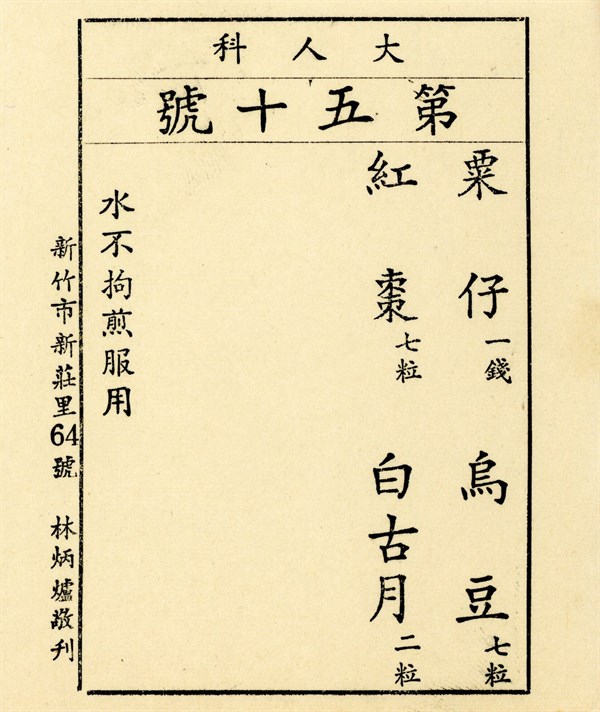 大人科
第五十號
粟仔一錢 烏豆七粒
紅棗七粒 白古月二粒
水不拘煎服用
新竹市新莊里64號 林炳爐敬刊